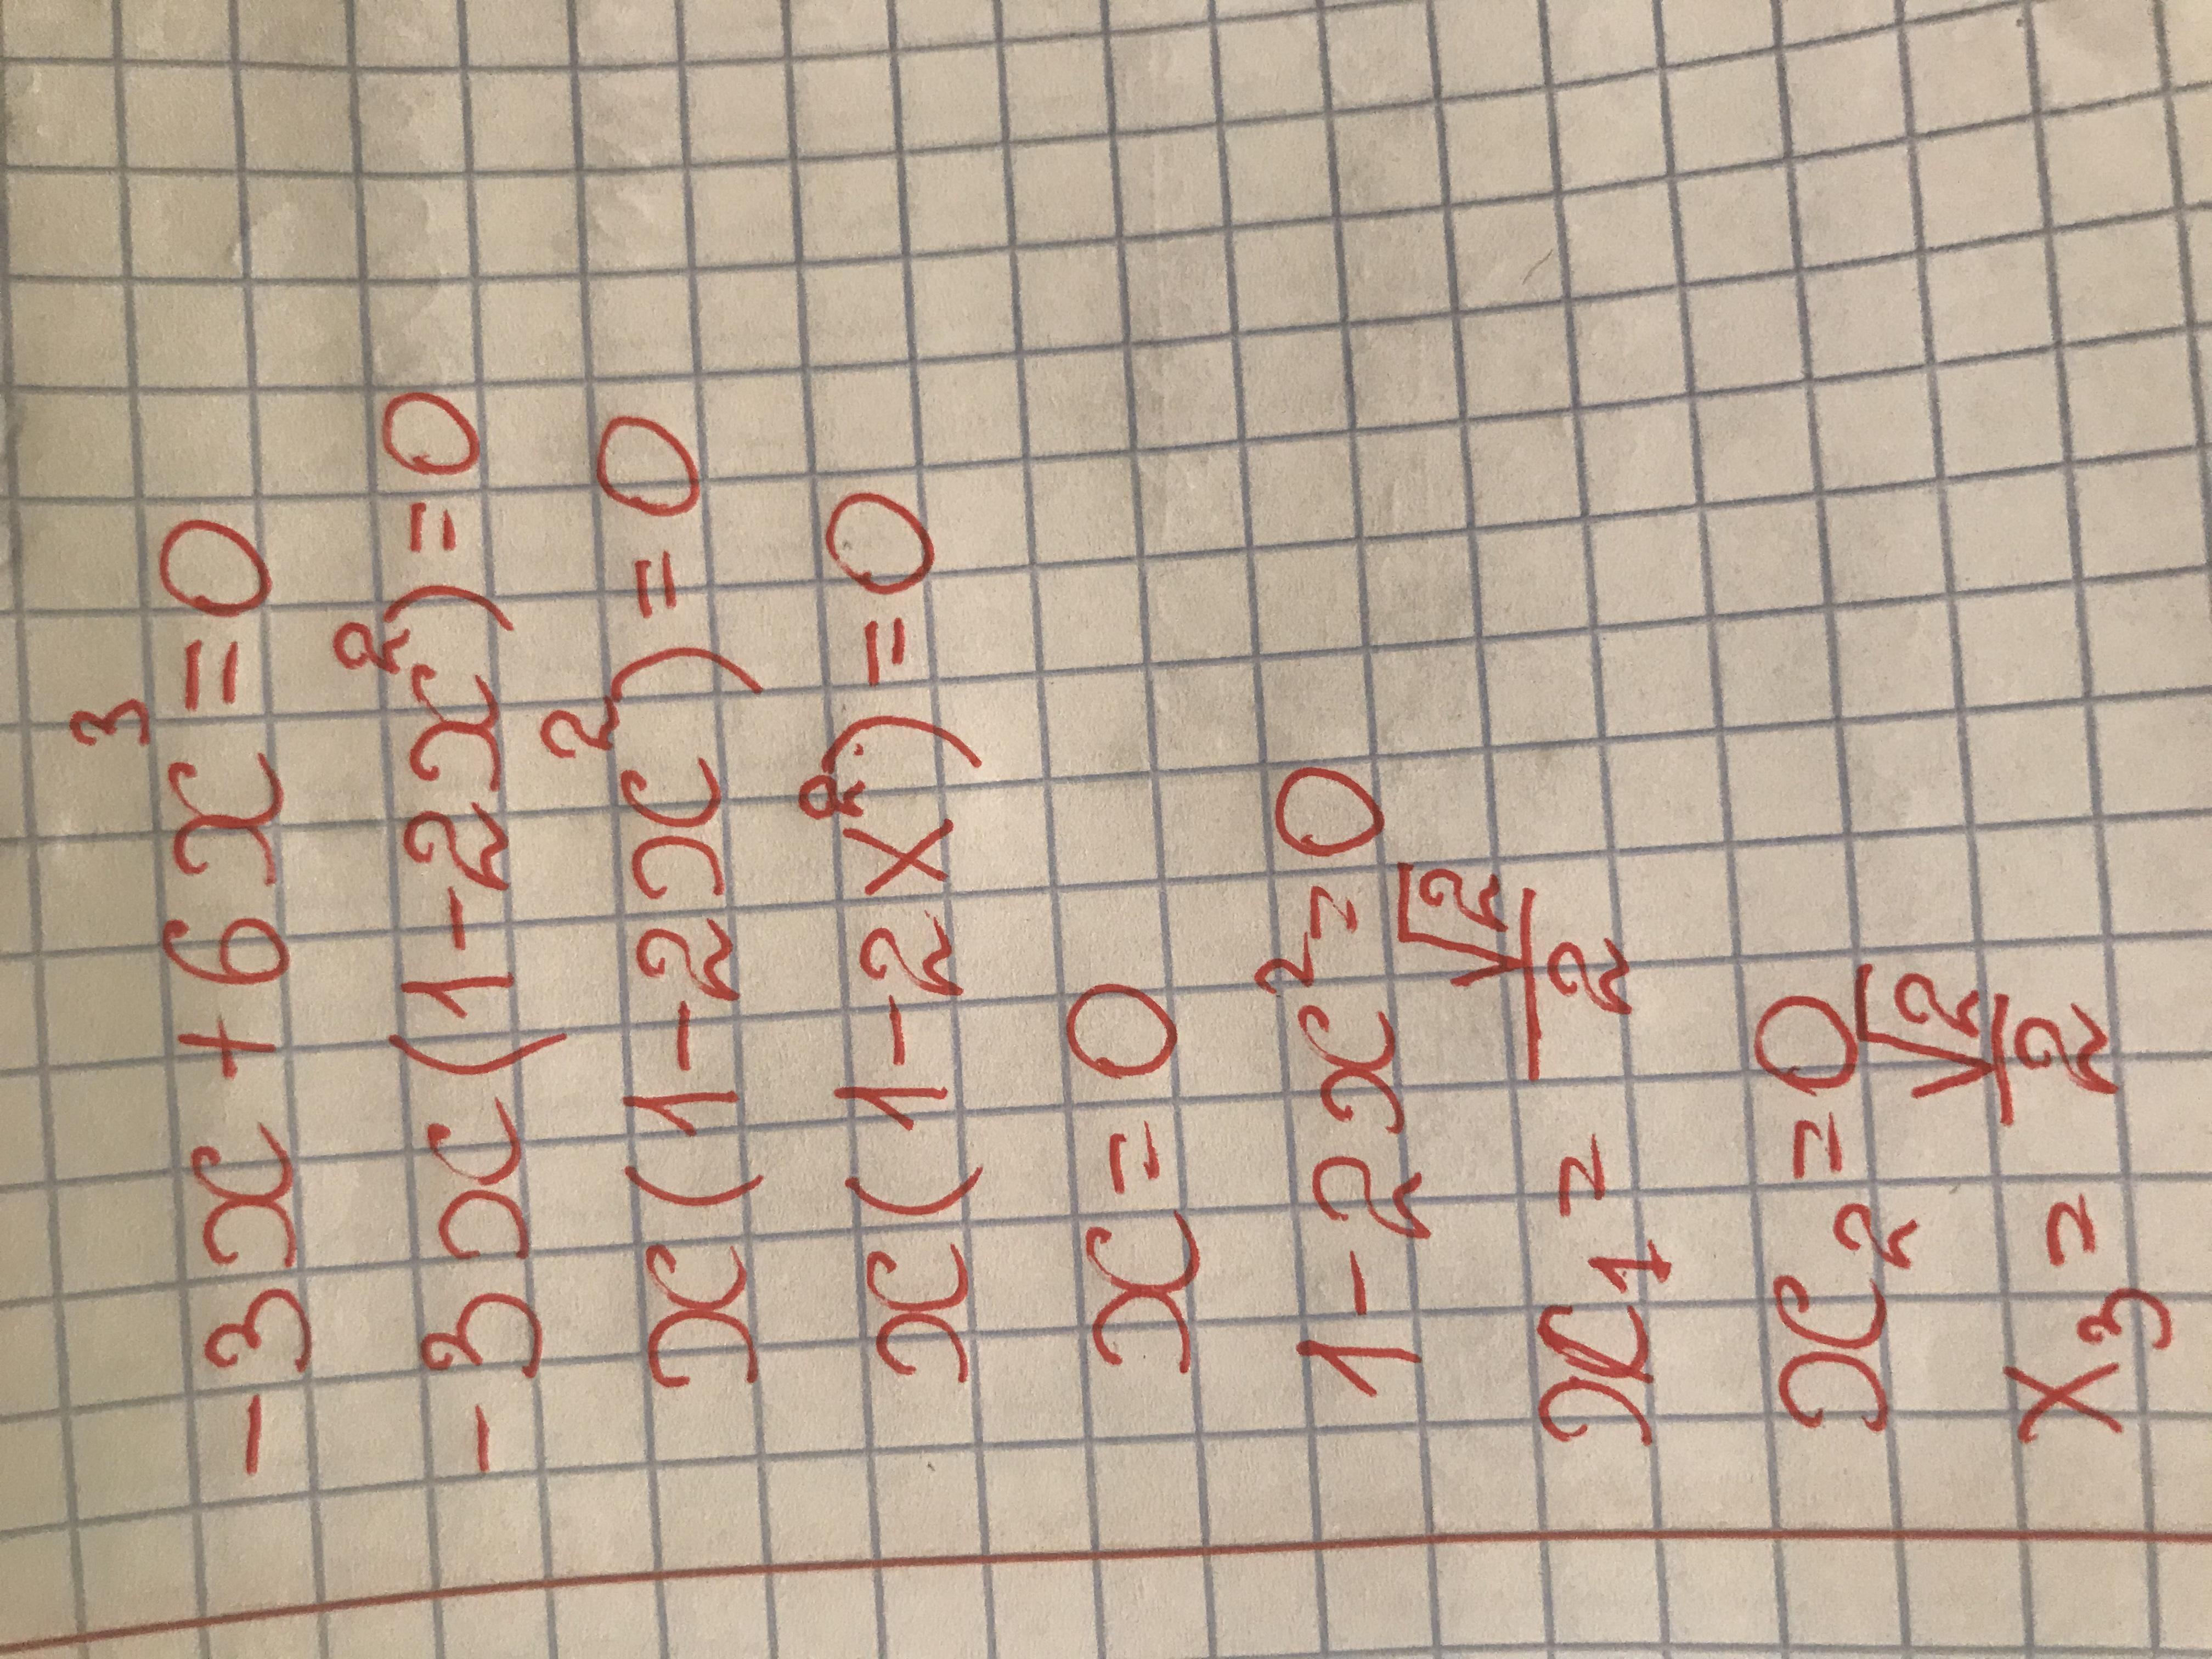 -3x+6x³=0
-3x(1-2x²)=0
x(1-2x²)=0
x(1-2x²)=0
x=0
1-2x²=0
x₁=-√2/2
x₂=0
x₃=√2/2